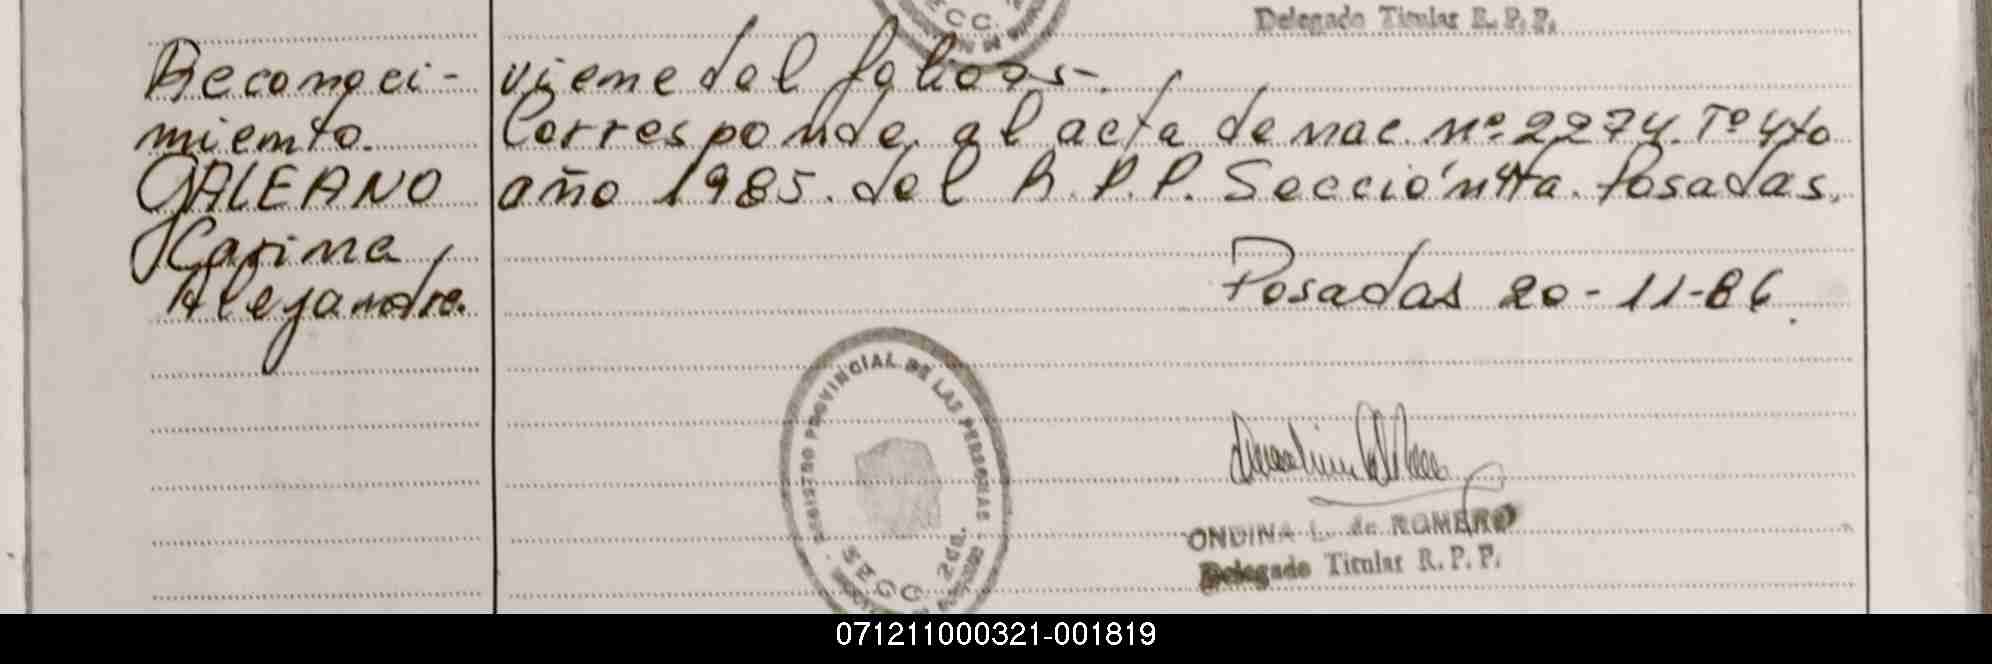 Delegado Titular R. P. P.
SECC.
Reconoci-
miento.
GALEANO
Carina
Alejandra.
viene del folio 05-.
Corresponde al acta de nac. Nº 2274. Tº 4to
año 1985. del R. P. P. Sección 4ta. Posadas.
Posadas 20-11-86.
REGISTRO PROVINCIAL DE LAS PERSONAS
SECC. 2da.
ONDINA L. de ROMERO
Delegado Titular R. P. P.
071211000321-001819